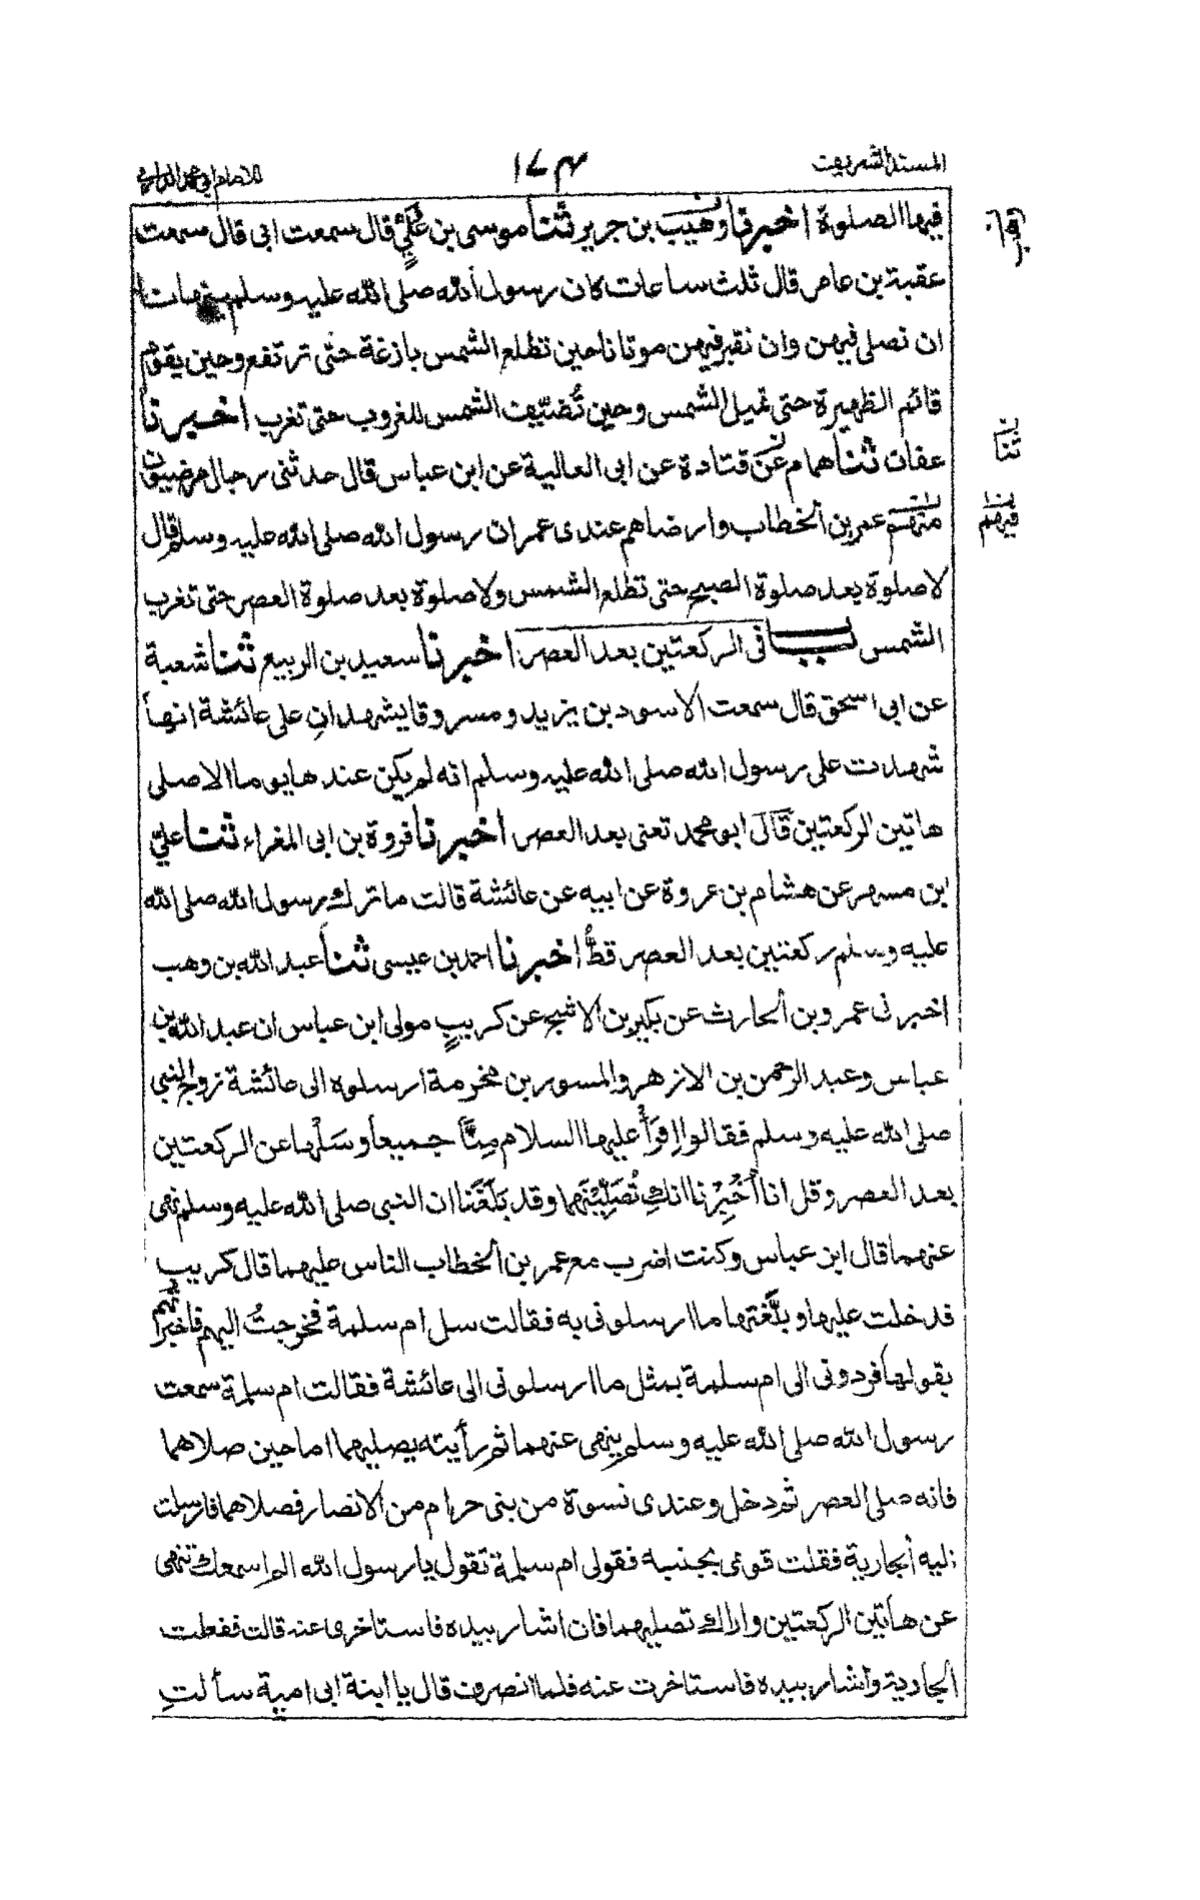 المسند الشريف
١٧٤
للامام ابي محمد الدارمي
فيها الصلوة اخبرنا وهيب بن جرير ثنا موسى بن عُلَيٍّ قال سمعت ابى قال سمعت
عقبة بن عامر قال ثلث ساعات كان رسول الله صلى الله عليه وسلم ينهانا
ان نصلى فيهن وان نقبر فيهن موتانا حين تطلع الشمس بازغة حتى ترتفع وحين يقوم
قائم الظهيرة حتى تميل الشمس وحين تُضَيّف الشمس للغروب حتى تغرب اخبرنا
عفان ثنا همام عن قتادة عن ابى العالية عن ابن عباس قال حدثنى رجال مرضيون
منهم عمر بن الخطاب وارضاهم عندى عمر ان رسول الله صلى الله عليه وسلم قال
لا صلوة بعد صلوة الصبح حتى تطلع الشمس ولا صلوة بعد صلوة العصر حتى تغرب
الشمس باب فى الركعتين بعد العصر اخبرنا سعيد بن الربيع ثنا شعبة
عن ابى اسحق قال سمعت الاسود بن يزيد ومسروقا يشهدانِ على عائشة انها
شهدت على رسول الله صلى الله عليه وسلم انه لم يكن عندها يوما الا صلى
هاتين الركعتين قال ابو محمد تعنى بعد العصر اخبرنا فروة بن ابى المغراء ثنا علىّ
ابن مسهر عن هشام بن عروة عن ابيه عن عائشة قالت ما ترك رسول الله صلى الله
عليه وسلم ركعتين بعد العصر قطُّ اخبرنا احمد بن عيسى ثنا عبد الله بن وهب
اخبرنى عمرو بن الحارث عن بكير بن الاشج عن كريبٍ مولى ابن عباس ان عبد الله بن
عباس وعبد الرحمن بن الازهر والمسور بن مخرمة ارسلوه الى عائشة زوج النبي
صلى الله عليه وسلم فقالوا اِقرَأْ عليها السلام مِنَّا جميعاً وسَلْها عن الركعتين
بعد العصر وقل انا اُخْبِرْنا انكِ تُصَلِّيْنَهما وقد بَلَغَنا ان النبى صلى الله عليه وسلم نهى
عنهما قال ابن عباس وكنت اضرب مع عمر بن الخطاب الناس عليهما قال كريب
فدخلت عليها وبلَّغتها ما ارسلونى به فقالت سل ام سلمة فخرجتُ اليهم فاخبرتهم
بقولها فردونى الى ام سلمة بمثل ما ارسلونى الى عائشة فقالت ام سلمة سمعت
رسول الله صلى الله عليه وسلم ينهى عنهما ثم رأيته يصليهما اما حين صلاهما
فانه صلى العصر ثم دخل وعندى نسوة من بنى حرام من الانصار فصلاهما فارسلت
اليه الجارية فقلت قومى بجنبه فقولى ام سلمة تقول يا رسول الله الم اسمعك تنهى
عن هاتين الركعتين واراك تصليهما فان اشار بيده فاستاخرى عنه قالت ففعلت
الجارية واشار بيده فاستاخرت عنه فلما انصرف قال يا ابنة ابى امية سألتِ
ثنا
فيهم